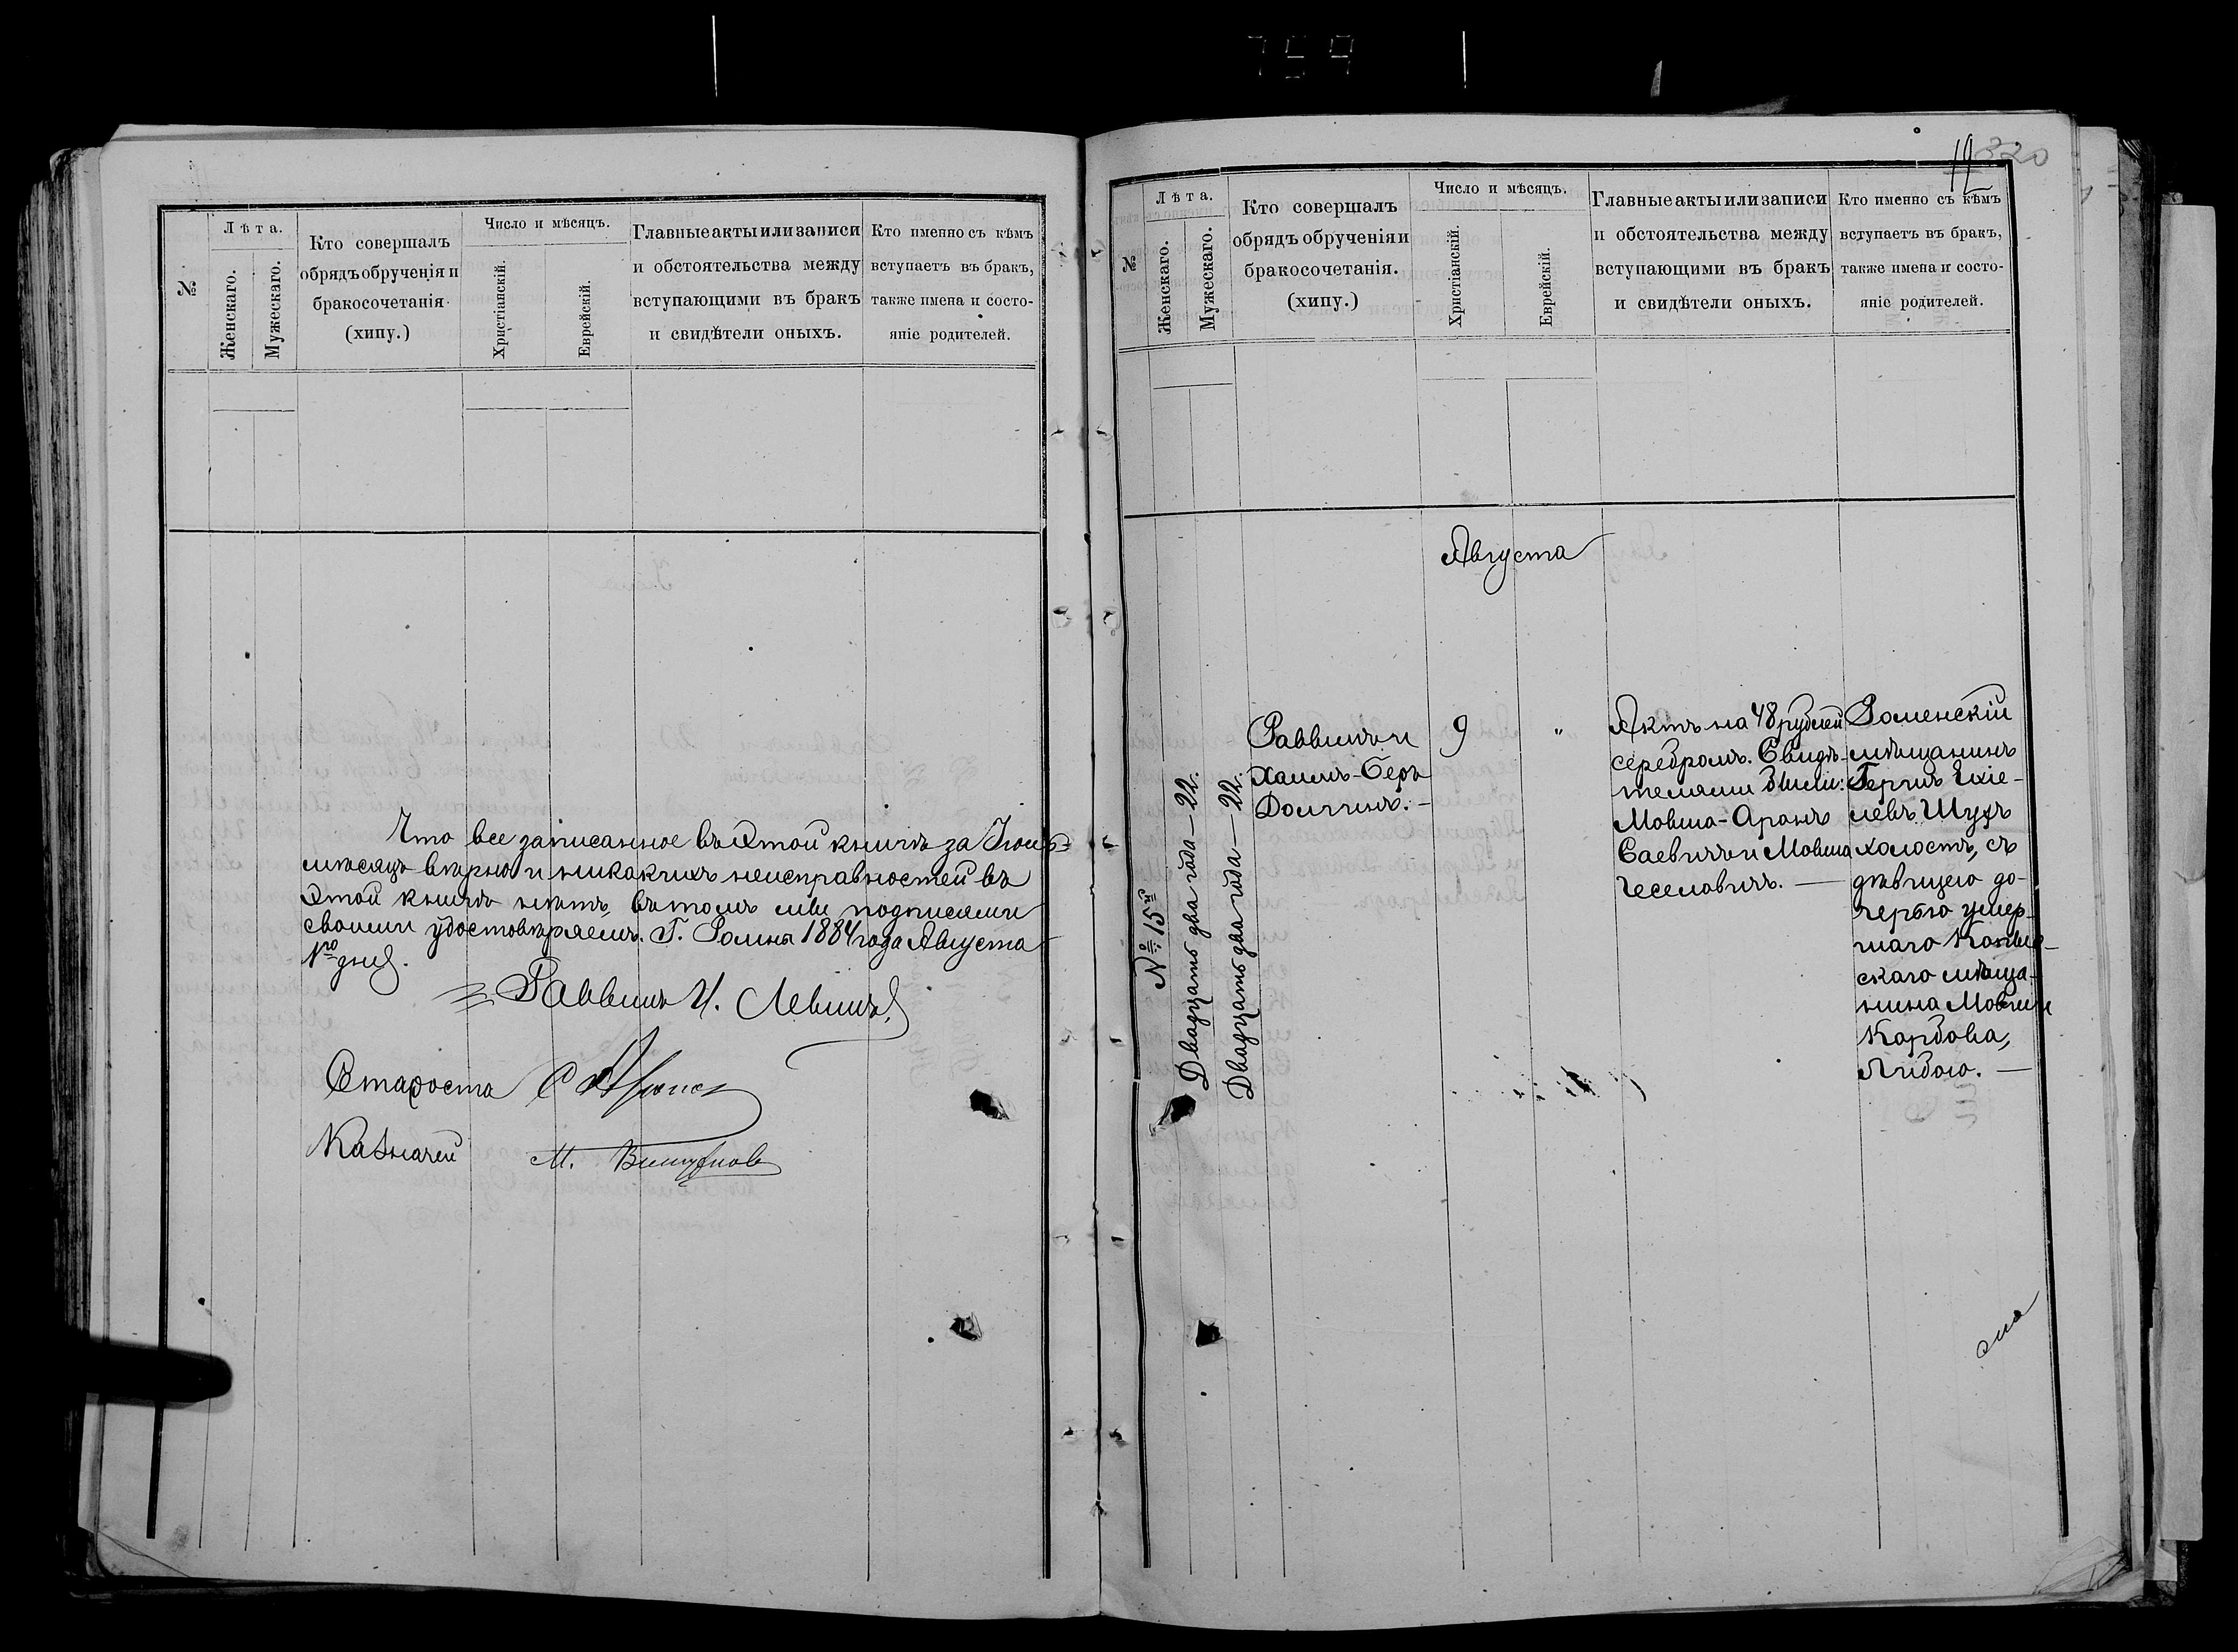 759
№
Лѣта.
Женскаго.
Мужескаго.
Кто совершалъ
обрядъ обрученія и
бракосочетанія
(хипу.)
Число и мѣсяцъ.
Христіанскій.
Еврейскій.
Главные акты или записи
и обстоятельства между
вступающими въ бракъ
и свидѣтели оныхъ.
Кто именно съ кѣмъ
вступаетъ въ бракъ,
также имена и состо-
яніе родителей.
Что все записанное въ этой книгѣ за Іюль
мѣсяцъ вѣрно и никакихъ неисправностей въ
этой книгѣ нѣтъ, въ томъ мы подписями
своими удостовѣряемъ. Г. Ромны 1884 года Августа
дня.
Раввинъ И. Левинъ
Староста
Казначей М.
19
320
№
Лѣта.
Женскаго.
Мужескаго.
Кто совершалъ
обрядъ обрученія и
бракосочетанія.
(хипу.)
Число и мѣсяцъ.
Христіанскій.
Еврейскій.
Главные акты или записи
и обстоятельства между
вступающими въ бракъ
и свидѣтели оныхъ.
Кто именно съ кѣмъ
вступаетъ въ бракъ,
также имена и состо-
яніе родителей.
Августа
№ 15й
Двадцать два года — 22.
Двадцать два года — 22.
Раввинъ и
Хаимъ-Беръ
Долгинъ. —
9
"
Актъ на 48 рублей
серебромъ. Свидѣ-
телями были:
Мовша-Аронъ
Саевичъ и Мовша
Чеселовичъ. —
Роменскій
мѣщанинъ
Гершъ Ехіе-
левъ Шуфъ
холостъ, съ
дѣвицею до-
черью умер-
шаго
скаго мѣща-
нина Мовши
Карбова,
Либою. —